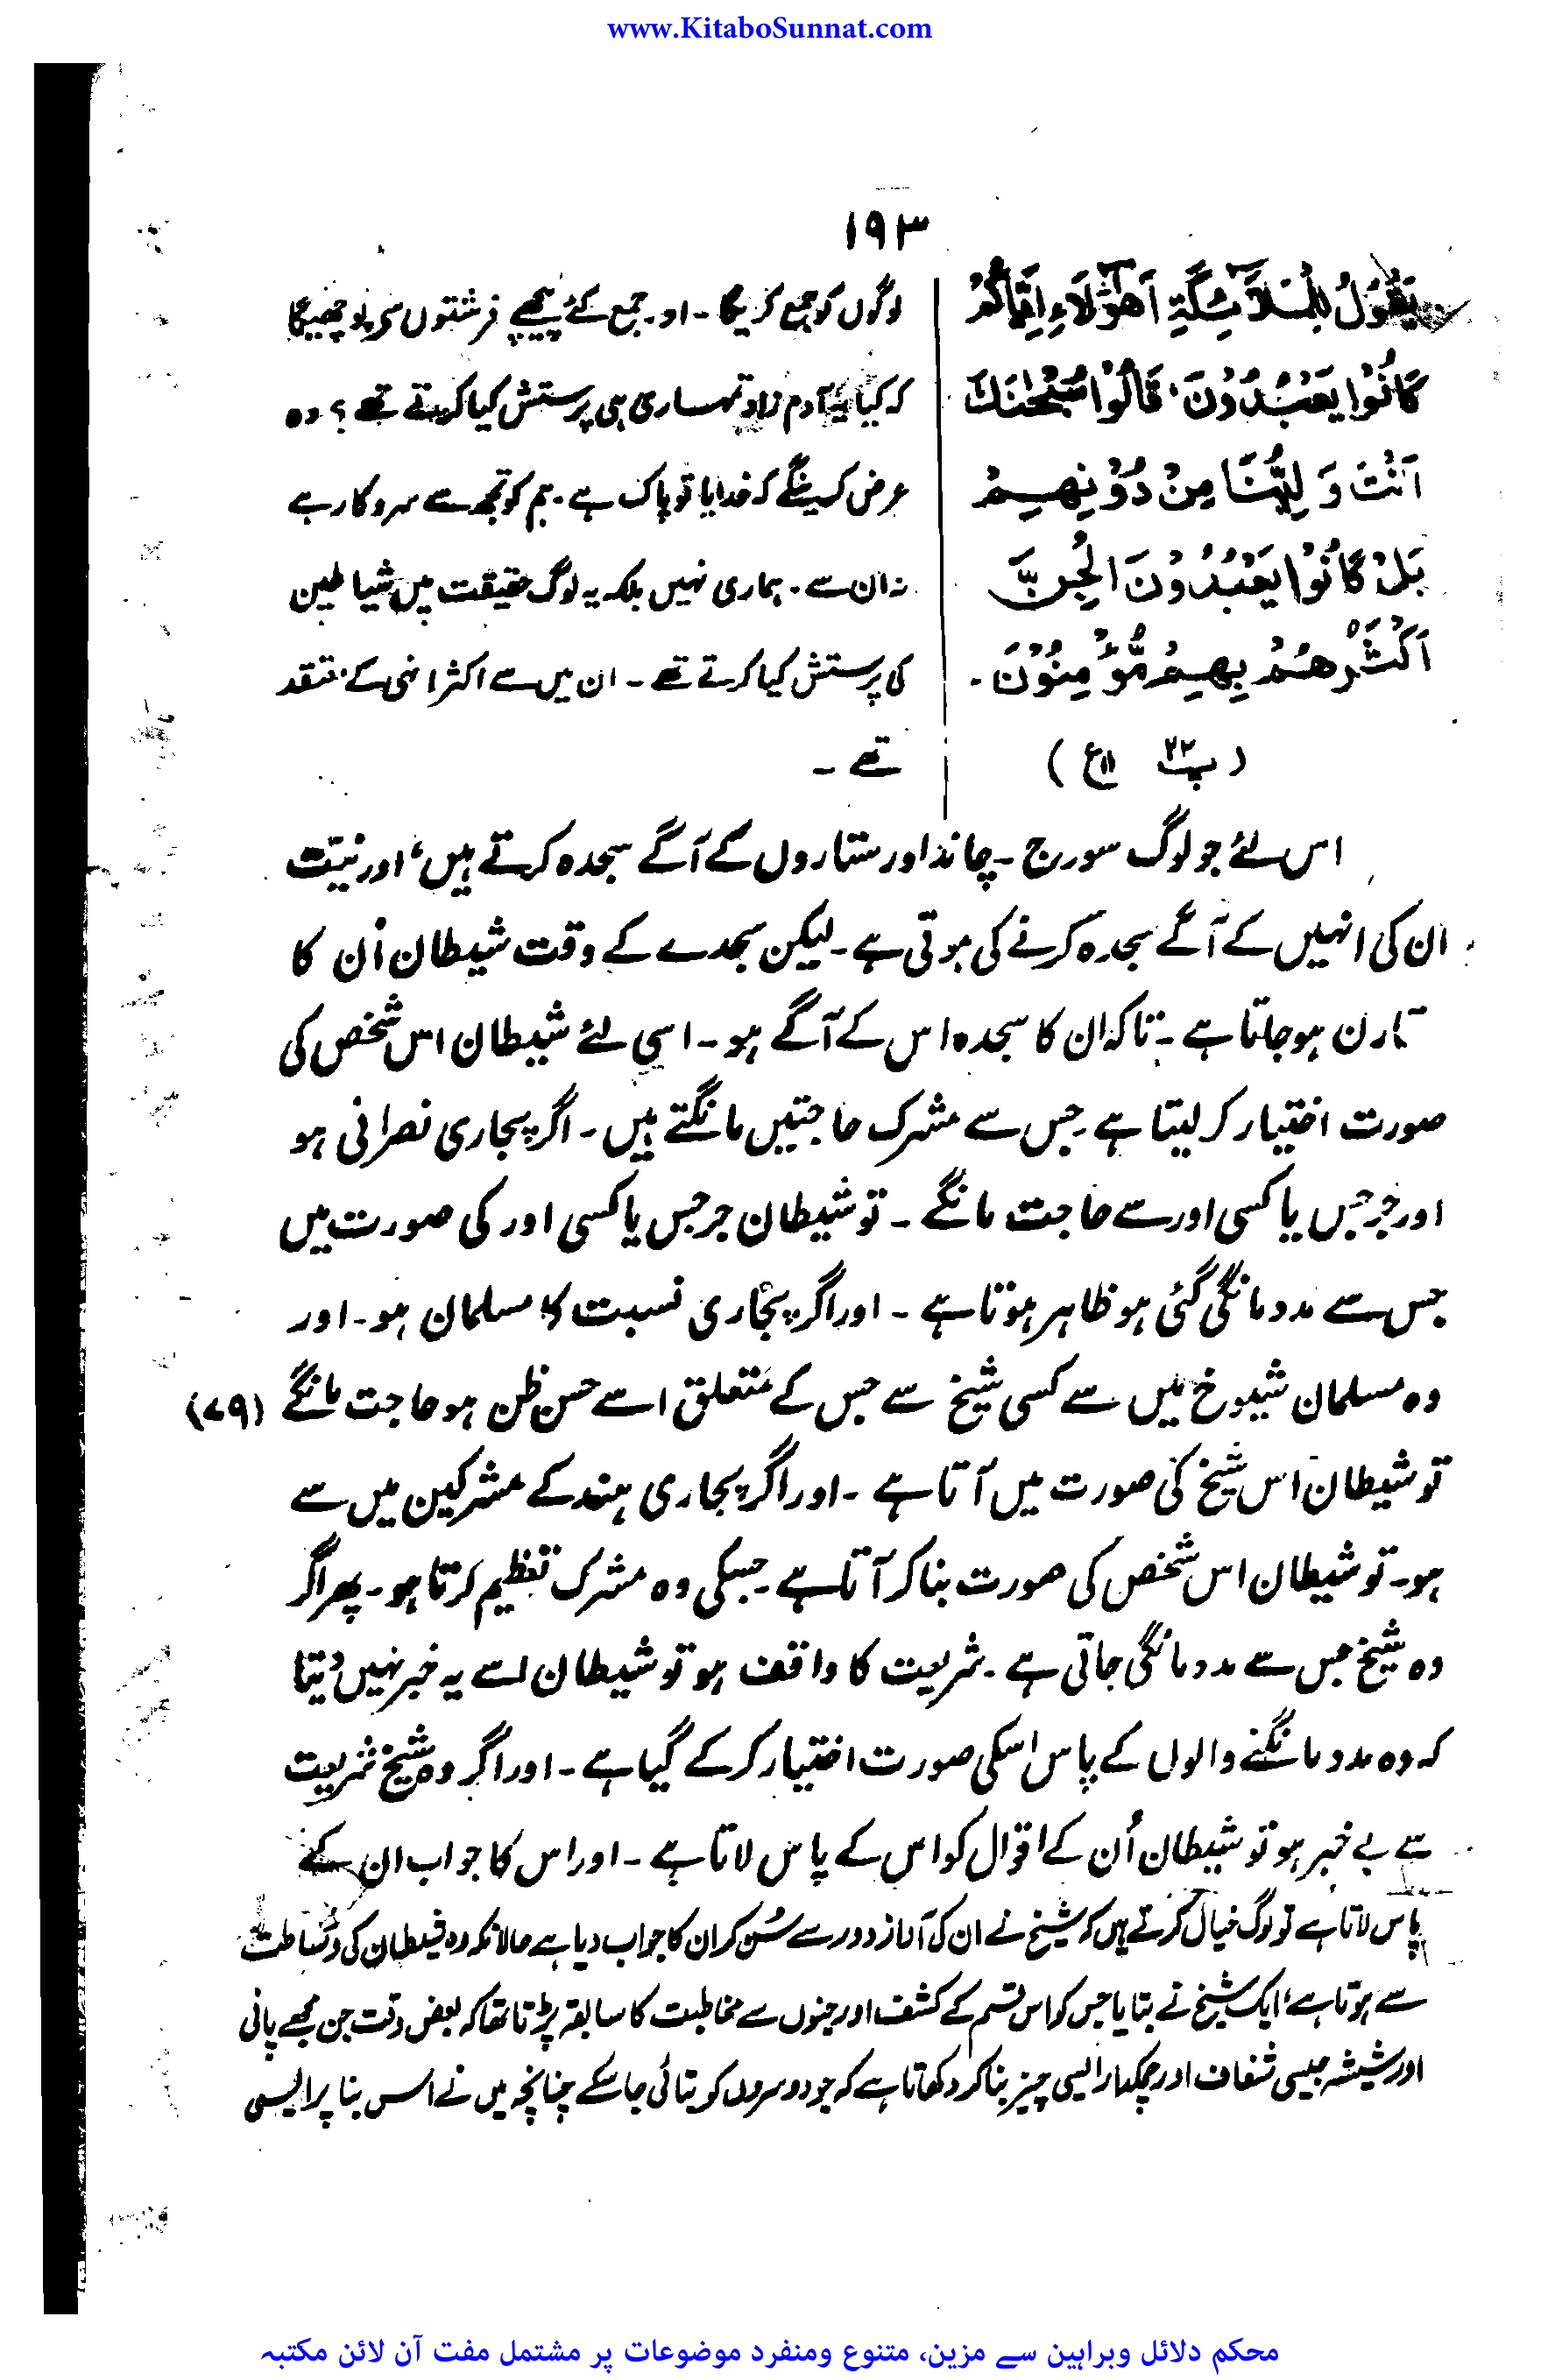 www.KitaboSunnat.com
۱۹۳
یَقُوْلُ لِلْمَلٰٓئِكَةِ اَهٰٓؤُلَآءِ اِیَّاكُمْ
كَانُوْا یَعْبُدُوْنَ، قَالُوْا سُبْحٰنَكَ
اَنْتَ وَلِیُّنَا مِنْ دُوْنِهِمْ
بَلْ كَانُوْا یَعْبُدُوْنَ الْجِنَّ
اَكْثَرُهُمْ بِهِمْ مُّؤْمِنُوْنَ۔
(پ۲۲ ع۱۱)
لوگوں کو جمع کریگا۔ اور جمع کئے پیچھے فرشتوں سے پوچھیگا
کہ کیا یہ آدم زاد تمہاری ہی پرستش کیا کرتے تھے؟ وہ
عرض کرینگے کہ خدایا تو پاک ہے۔ ہم کو تجھ سے سروکار ہے
نہ ان سے۔ ہماری نہیں بلکہ یہ لوگ حقیقت میں شیاطین
کی پرستش کیا کرتے تھے۔ ان میں سے اکثر انہی کے معتقد
تھے۔
اس لئے جو لوگ سورج۔ چاند اور ستاروں کے آگے سجدہ کرتے ہیں، اور نیّت
ان کی انہیں کے آگے سجدہ کرنے کی ہوتی ہے۔ لیکن سجدے کے وقت شیطان اُن کا
ہو جاتا ہے۔ تاکہ ان کا سجدہ اس کے آگے ہو۔ اسی لئے شیطان اس شخص کی
صورت اختیار کر لیتا ہے۔ جس سے مشرک حاجتیں مانگتے ہیں۔ اگر پجاری نصرانی ہو
اور جرجس یا کسی اور سے حاجت مانگے۔ تو شیطان جرجس یا کسی اور کی صورت میں
جس سے مدد مانگی گئی ہو ظاہر ہوتا ہے۔ اور اگر پجاری نسبت کا مسلمان ہو۔ اور
وہ مسلمان شیوخ میں سے کسی شیخ سے جس کے متعلق اسے حسن ظن ہو حاجت مانگے (۷۹)
تو شیطان اس شیخ کی صورت میں آتا ہے۔ اور اگر پجاری ہند کے مشرکین میں سے
ہو۔ تو شیطان اس شخص کی صورت بنا کر آتا ہے۔ جسکی وہ مشرک تعظیم کرتا ہو۔ پھر اگر
وہ شیخ جس سے مدد مانگی جاتی ہے۔ شریعت کا واقف ہو تو شیطان اسے یہ خبر نہیں دیتا
کہ وہ مدد مانگنے والوں کے پاس اسکی صورت اختیار کر کے گیا ہے۔ اور اگر وہ شیخ شریعت
سے بے خبر ہو تو شیطان اُن کے اقوال کو اس کے پاس لاتا ہے۔ اور اس کا جواب ان کے
پاس لاتا ہے تو لوگ خیال کرتے ہیں کہ شیخ نے ان کی آواز دور سے سُن کر ان کا جواب دیا ہے حالانکہ وہ شیطان کی وساطت
سے ہوتا ہے، ایک شیخ نے بتایا جس کو اس قسم کے کشف اور جنوں سے مخاطبت کا سابقہ پڑتا تھا کہ بعض وقت جن مجھے پانی
اور شیشہ جیسی شفاف اور چمکدار ایسی چیز بنا کر دکھاتا ہے کہ جو دوسروں کو بتائی جا سکے چنانچہ میں نے اس بنا پر ایسی
محکم دلائل وبراہین سے مزین، متنوع ومنفرد موضوعات پر مشتمل مفت آن لائن مکتبہ